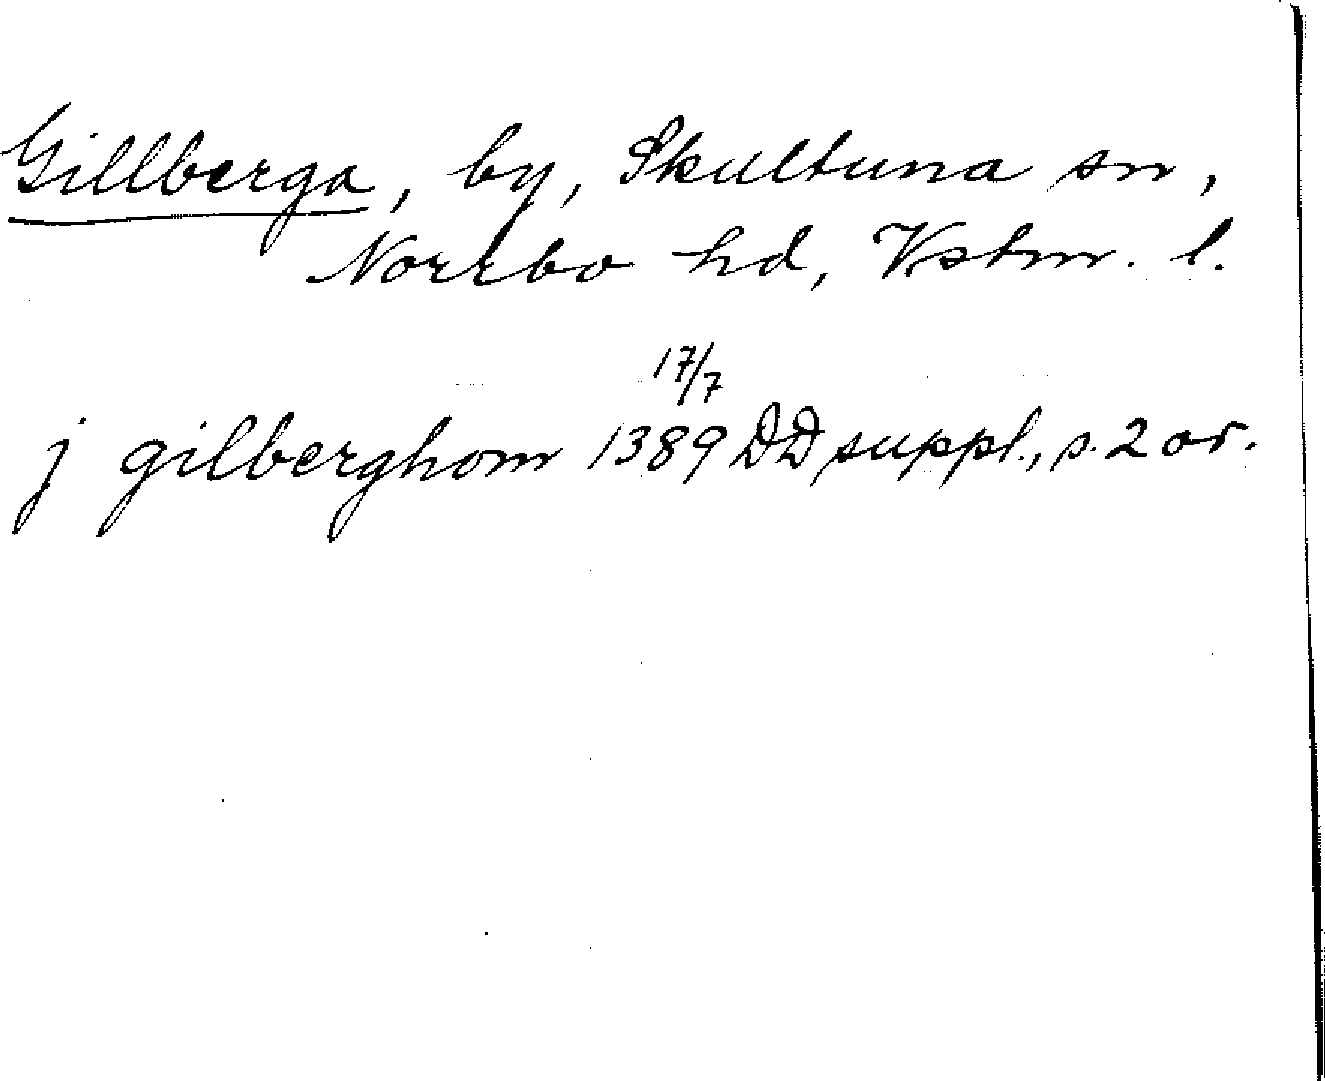 Gillberga, by, Skultuna sn,
Norrbo hd, Vstm. l.
17/7
j gilberghom 1389 DD suppl., s. 2 or.